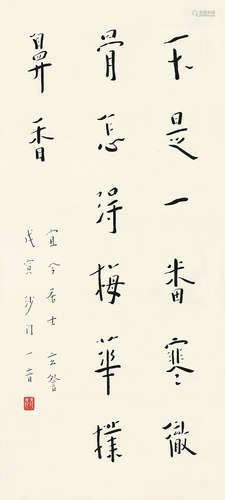 不是一番寒徹
骨怎得梅華撲
鼻香
宜今居士玄詧
戊寅沙門一音